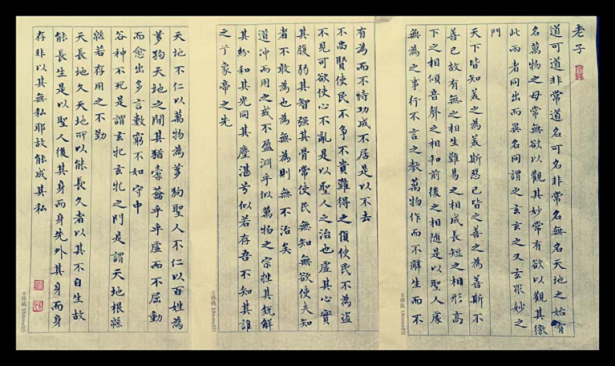 老子
道可道非常道名可名非常名無名天地之始有
名萬物之母常無欲以觀其妙常有欲以觀其徼
此兩者同出而異名同謂之玄玄之又玄眾妙之
門
天下皆知美之為美斯惡已皆之善之為善斯不
善已故有無之相生難易之相成長短之相形高
下之相傾音聲之相和前後之相隨是以聖人處
無為之事行不言之教萬物作而不辭生而不
有為而不恃功成不居是以不去
不尚賢使民不爭不貴難得之貨使民不為盜
不見可欲使心不亂是以聖人之治也虛其心實
其腹弱其智強其骨常使民無知無欲使夫知
者不敢為也為無為則無不治矣
道沖而用之或不盈淵乎似萬物之宗挫其銳解
其紛和其光同其塵湛兮似若存吾不知其誰
之子象帝之先
天地不仁以萬物為芻狗聖人不仁以百姓為
芻狗天地之間其猶橐籥乎虛而不屈動
而愈出多言數窮不如守中
谷神不死是謂玄牝玄牝之門是謂天地根綿
綿若存用之不勤
天長地久天地所以能長久者以其不自生故
能長生是以聖人後其身而身先外其身而身
存非以其無私耶故能成其私